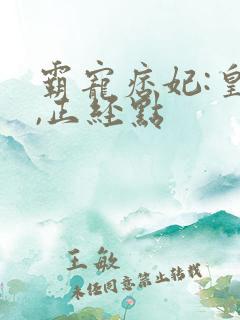 霸寵痞妃:皇
,正經點
王敏
未经同意禁止转载